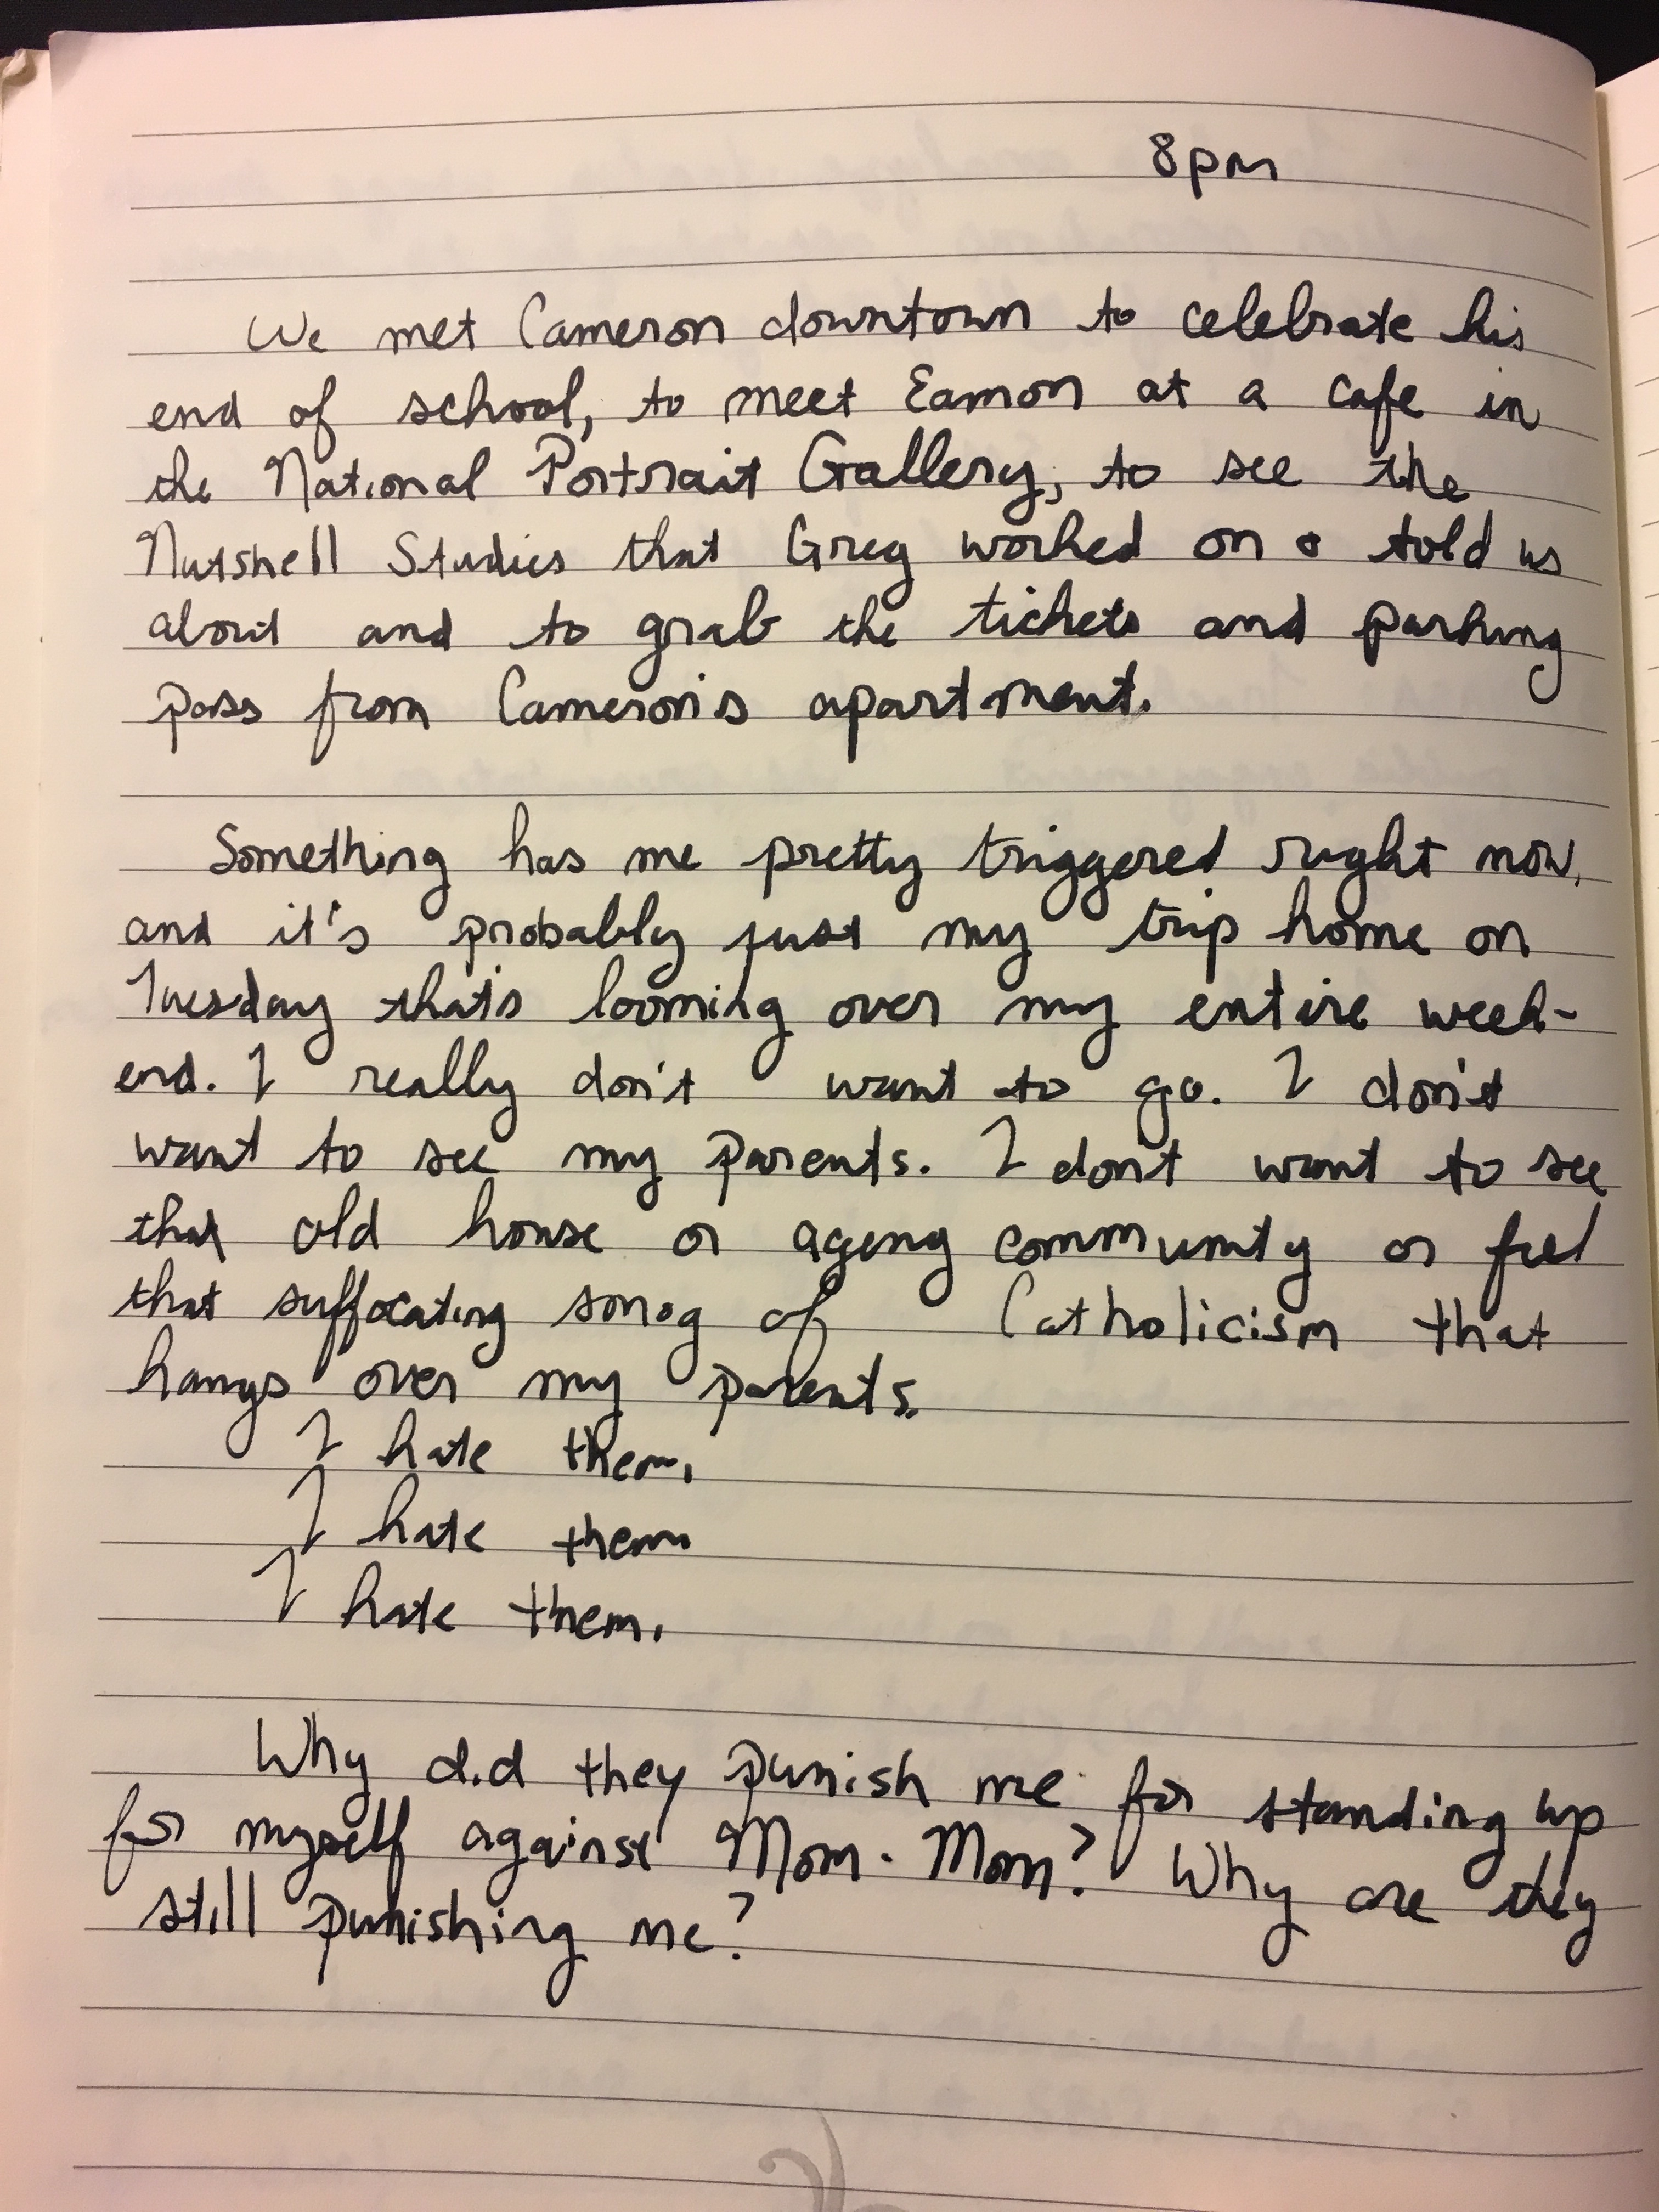 8pm
We met Cameron downtown to celebrate his
end of school, to meet Eamon at a cafe in
the National Portrait Gallery, to see the
Nutshell Studies that Greg worked on & told us
about and to grab the tickets and parking
pass from Cameron's apartment.
Something has me pretty triggered right now,
and it's probably just my trip home on
Tuesday that's looming over my entire week-
end. I really don't want to go. I don't
want to see my parents. I don't want to see
that old house or ageing community or feel
that suffocating smog of Catholicism that
hangs over my parents.
I hate them.
I hate them.
I hate them.
Why did they punish me for standing up
for myself against Mom-Mom? Why are they
still punishing me?